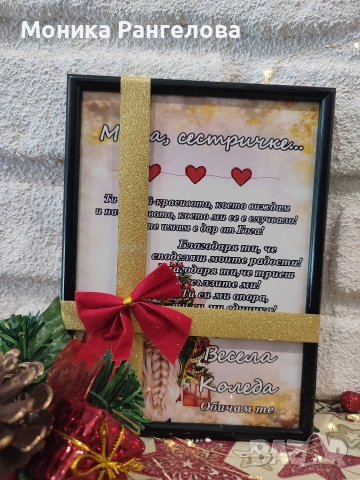 Моника Рангелова
сестричке...
Ти красивото, което виждам
и на което ми се е случвало!
те имам е дар от Бога!
Благодаря ти, че
споделяш моите радости!
ти, че триеш
сълзите ми!
Ти си ми опора,
Весела
Коледа
Обичам те
BAZAR